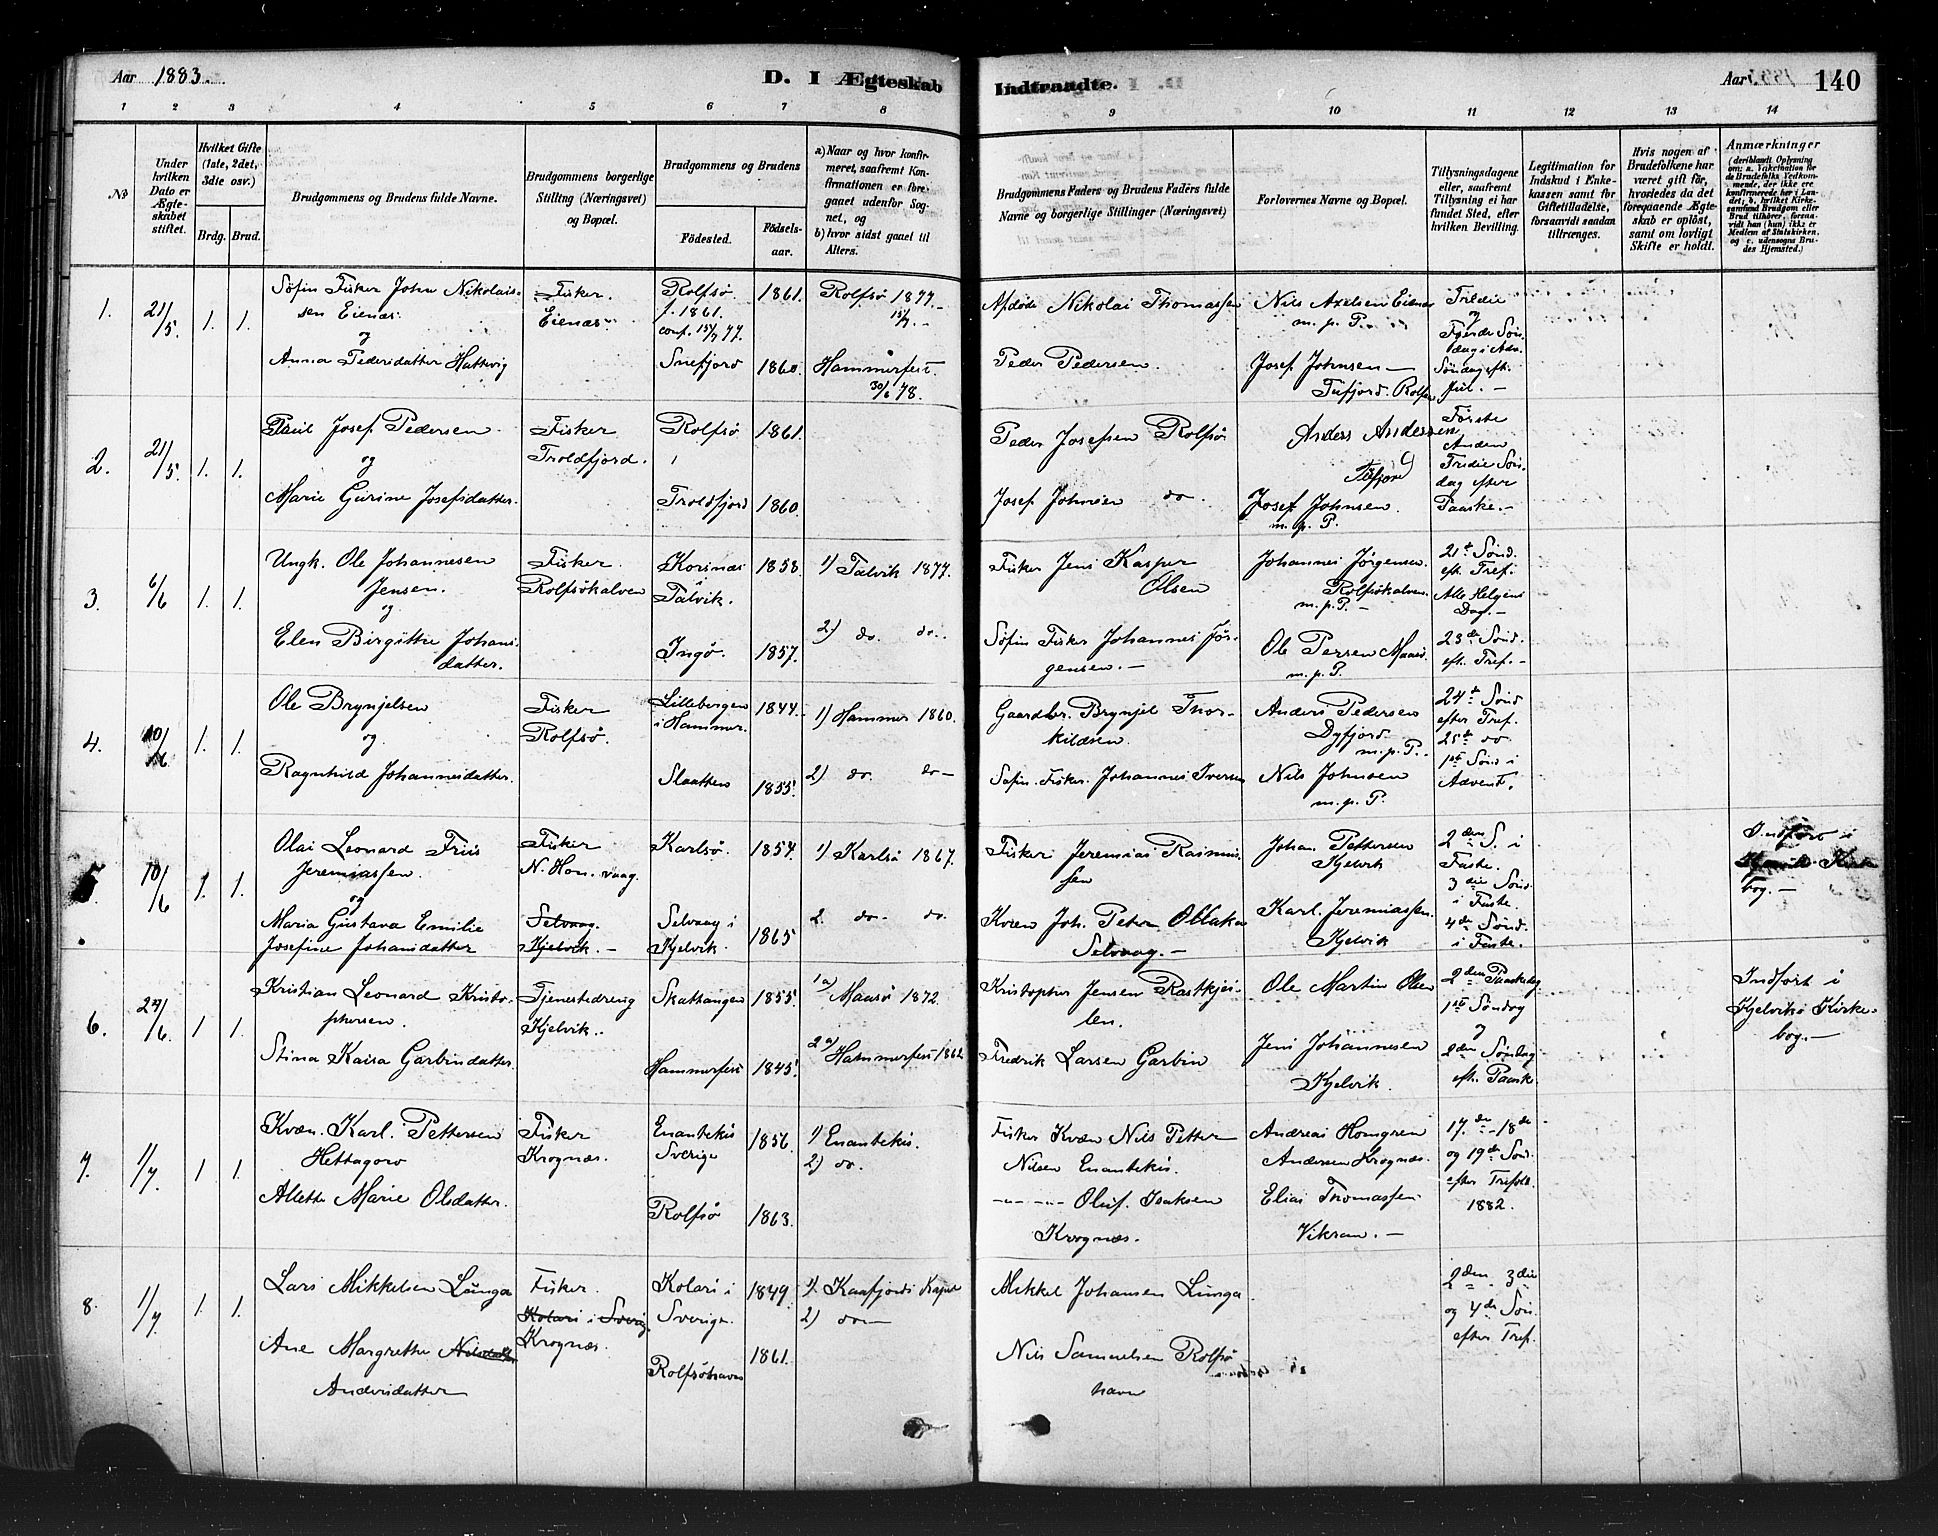 Aar 1883.
D. I Ægteskab
Indtraadte.
Aar
140
1 2 3 4 5 6 7 8
9 10 11 12 13 14
No
Under hvilken Dato er Ægteskabet stiftet.
Hvilket Gifte (1ste, 2det, 3die osv.)
Brdg. Brud.
Brudgommens og Brudens fulde Navne.
Brudgommens borgerlige Stilling (Næringsvei) og Bopæl.
Brudgommens og Brudens
Födested.
Födselsaar.
a) Naar og hvor konfirmeret, saafremt Konfirmationen er foregaaet udenfor Sognet, og
b) hvor sidst gaaet til Alters.
Brudgommens Faders og Brudens Faders fulde Navne og borgerlige Stillinger (Næringsvei)
Forlovernes Navne og Bopæl.
Tillysningsdagene eller, saafremt Tillysning ei har fundet Sted, efter hvilken Bevilling.
Legitimation for Indskud i Enkekassen samt for Giftetilladelse, forsaavidt saadan tiltrænges.
Hvis nogen af Brudefolkene har været gift før, hvorledes da det foregaaende Ægteskab er oplöst, samt om lovligt Skifte er holdt.
Anmærkninger
(deriblandt Oplysning om: a. Vakcination for de Brudefolks Vedkommende, der ikke ere konfirmerede her i Landet; b. hvilket Kirkesamfund Brudgom eller Brud tilhörer, forsaavidt han (hun) ikke er Medlem af Statskirken, og c. udensogns Brudes Hjemsted.)
1. 21/5 1. 1.
Söfin Fisker John Nikolais-
sen Eienæs.
og
Anna Pedersdatter Hattvig
Fisker.
Eienæs
Rolfsö. 1861.
f. 1861.
conf. 15/7 77
Snefjord 1860.
Rolfsö 1877.
15/7.
Hammerfest.
30/6 78.
Afdöde Nikolai Thomassen
Peder Pedersen.
Nils Axelsen Eienæs
m. p. P.
Josef Johnsen
Tufjord. Rolfsö
Tredie
og
Fjerde Sön-
dag i Adv.
Söndag eft.
Jul.
2. 21/5. 1. 1.
Paul Josef Pedersen
og
Marie Gurine Josefsdatter.
Fisker
Troldfjord.
Rolfsö 1861.
Troldfjord 1860.
Peder Josefsen Rolfsö
Josef Johnsen do.
Anders Andersen
Tufjord
Josef Johnsen.
m. p. P.
Første
Anden
Tredie Sön-
dag efter
Paaske.
3. 6/6 1. 1.
Ungk. Ole Johannesen
Jensen.
og
Elen Birgitte Johans-
datter.
Fisker.
Rolfsökalven
Korsnæs 1858.
Talvik.
Ingö. 1857.
1) Talvik 1877.
2) do. do.
Fisker Jens Kasper
Olsen
Söfin Fisker Johannes Jör-
gensen.
Johannes Jörgensen.
Rolfsökalven.
m. p. P.
Ole Persen Maasö.
m. p. P.
21de Sönd.
eft. Tref.
Alle Helgens
Dag.
23de Sönd.
eft. Tref.
4. 10/6 1. 1.
Ole Brynjelsen
og
Ragnhild Johannesdatter.
Fisker
Rolfsö.
Lillebergen 1844.
i Hammer.
Slaatten 1855.
1) Hammer 1860.
2) do. do
Gaardbr. Brynjel Thor-
kildsen.
Söfin. Fisker. Johannes Iversen
Anders Pedersen
Dyfjord
m. p. P.
Nils Johnsen
m. p. P.
24de Sönd
efter Tref.
25de do
1ste Sönd i
Advent.
5. 10/6 1. 1.
Olai Leonard Friis
Jeremiassen.
og
Maria Gustava Emilie
Josefine Johansdatter
Fisker
N. Hon. vaag.
Selvaag.
Kjelvik.
Karlsö. 1854.
Selvaag i 1865
Kjelvik.
1) Karlsö 1867.
2. do. do.
Fisker Jeremias Rasmus-
sen
Kvæn Joh. Peter Ollaka
Selvaag.
Johan. Pettersen
Kjelvik
Karl. Jeremiassen.
Kjelvik
2den S. i
Faste.
3die Sönd
i Faste.
4de Sönd
i Faste.
Indfört i
Kirke
bog.
6. 24/6 1 1.
Kristian Leonard Kristo-
phersen.
Stina Kaisa Garbindatter.
Tjenestedreng
Kjelvik.
Skatvangen 1855.
Hammerfest 1845.
1a) Maasö 1872.
2a) Hammerfest 1862
Kristopher Jensen Rastkjös-
len.
Fredrik Larsen Garbin
Ole Martin Olsen
Jens Johannesen
Kjelvik.
2den Paaskedag
1ste Söndag
og
2den Söndag
eft. Paaske.
Indfört i
Kjelviks Kirke-
bog.
7. 1/7. 1 1.
Kvæn. Karl. Pettersen
Hettagoro
Allette Marie Olsdatter.
Fisker
Krognæs.
Enontekis 1856
Sverige
Rolfsö 1863.
1) Enontekis.
2) do.
Fisker Kvæn Nils Petter
Nilsen Enontekis.
Oluf. Isaksen
Krognæs.
Andreas Homgren
Andersen Krognæs.
Elias Thomassen
Vikran.
17de 18de
og 19de Sönd.
efter Trefold.
1882.
8. 1/7. 1. 1.
Lars Mikkelsen Lunga
Ane Margrethe Nilsdatter
Andersdatter
Fisker.
Kolari i Sverig.
Krognæs.
Kolari i 1849
Sverige.
Rolfsöhavn 1861.
1). Kaafjords Kapel
2) do
Mikkel Johansen Lunga.
Nils Samuelsen Rolfsö
havn
2den 3die
og 4de Sön.
efter Tref.